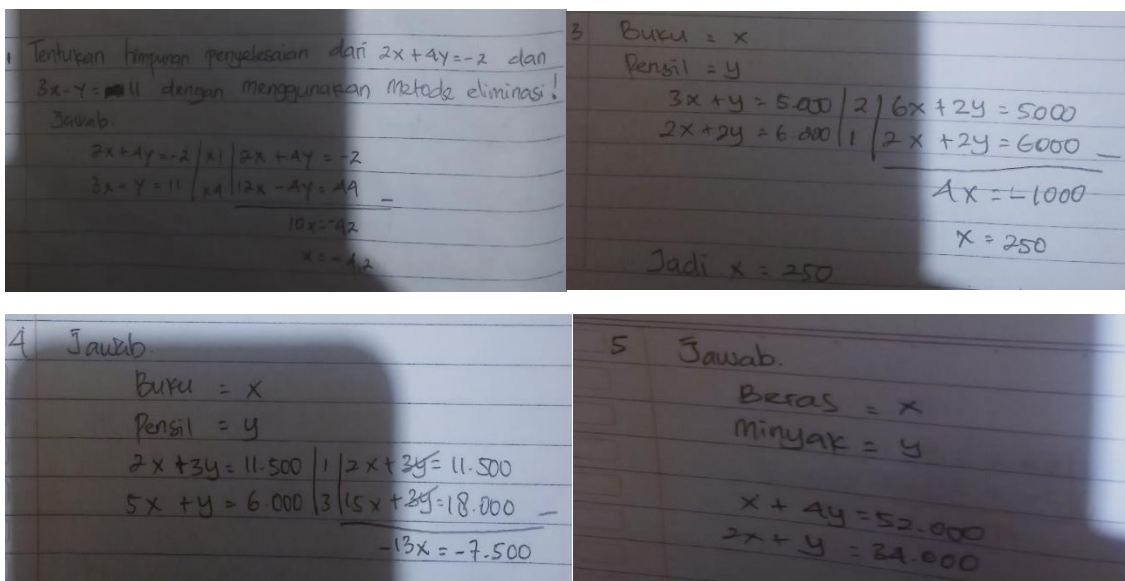 1 Tentukan himpunan penyelesaian dari 2x + 4y = -2 dan
3x - y = 11 dengan menggunakan Metode eliminasi!
Jawab.
2x + 4y = -2 | x1 | 2x + 4y = -2
3x - y = 11 | x4 | 12x - 4y = 44 -
10x = -42
x = -4,2
3 Buku = x
Pensil = y
3x + y = 5.000 | 2 | 6x + 2y = 5000
2x + 2y = 6.000 | 1 | 2x + 2y = 6000 -
4x = -1000
x = 250
Jadi x = 250
4 Jawab.
Buku = x
Pensil = y
2x + 3y = 11.500 | 1 | 2x + 3y = 11.500
5x + y = 6.000 | 3 | 15x + 3y = 18.000 -
-13x = -7.500
5 Jawab.
Beras = x
Minyak = y
x + 4y = 52.000
2x + y = 34.000